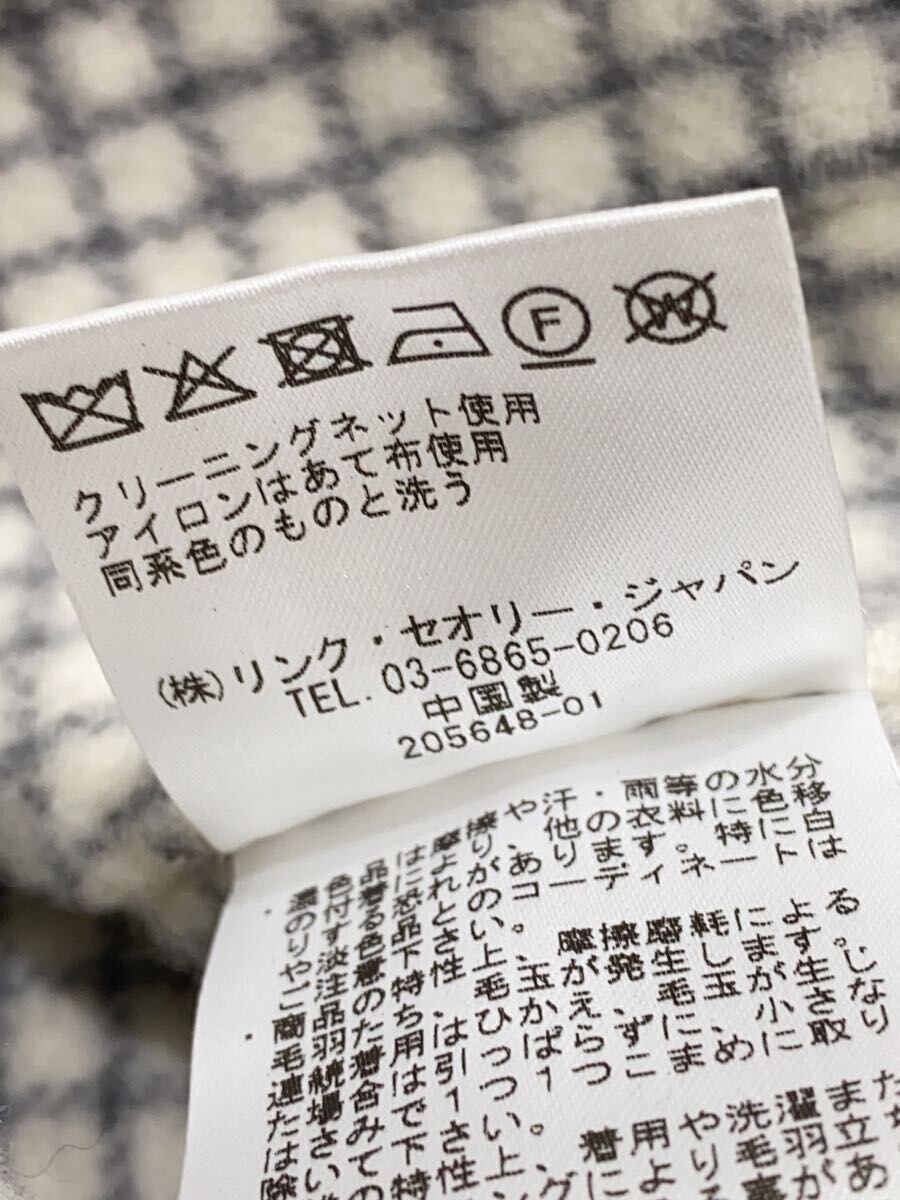 クリーニングネット使用
アイロンはあて布使用
同系色のものと洗う
(株)リンク・セオリー・ジャパン
TEL. 03-6865-0206
中国製
205648-01
・濃色品は摩擦や汗・雨等の水分
の付着により、他の衣料に色移
りする恐れがあります。特に白
や淡色品とのコーディネートは
ご注意下さい。
・商品の特性上、摩擦磨耗による
毛羽たち、毛玉が発生します。
連続着用はひかえ、毛玉が生じ
た場合は引っぱらずに、小さな
はさみで1つ1つこまめに取り
除いて下さい。
特性上、着用や洗濯また
により毛羽立